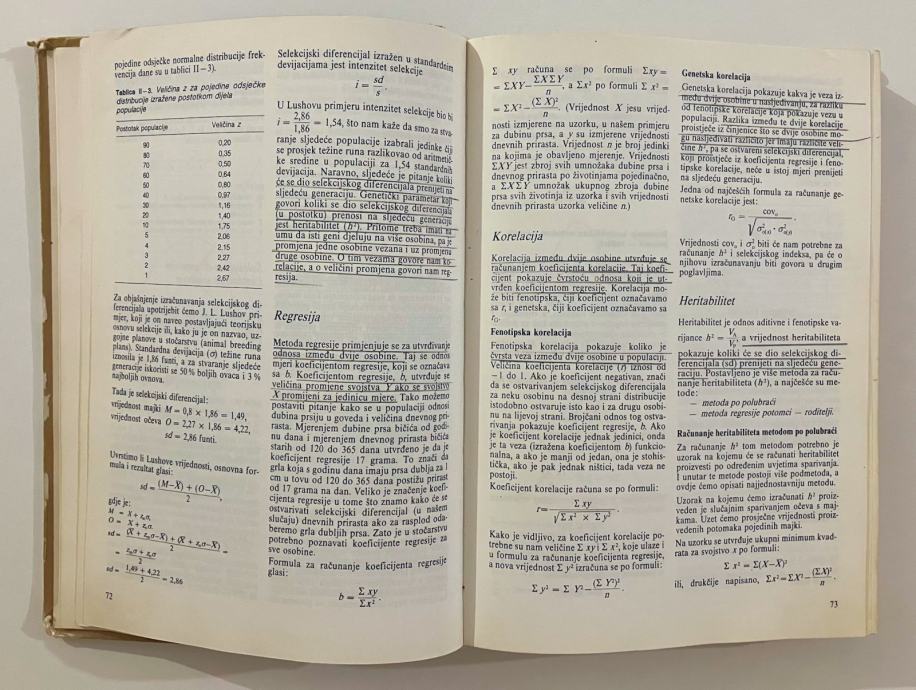 pojedine odsječke normalne distribucije frek-
vencija dane su u tablici II—3).
Tablica II—3. Veličina z za pojedine odsječke
distribucije izražene postotkom dijela
populacije
Postotak populacije Veličina z
90 0,20
80 0,35
70 0,50
60 0,64
50 0,80
40 0,97
30 1,16
20 1,40
10 1,75
5 2,06
4 2,15
3 2,27
2 2,42
1 2,67
Za objašnjenje izračunavanja selekcijskog di-
ferencijala upotrijebit ćemo J. L. Lushov pri-
mjer, koji je on naveo postavljajući teorijsku
osnovu selekcije ili, kako ju je on nazvao, uz-
gojne planove u stočarstvu (animal breeding
plans). Standardna devijacija (σ) težine runa
iznosila je 1,86 funti, a za stvaranje sljedeće
generacije iskoristi se 50 % boljih ovaca i 3 %
najboljih ovnova.
Tada je selekcijski diferencijal:
vrijednost majki M = 0,8 × 1,86 = 1,49,
vrijednost očeva O = 2,27 × 1,86 = 4,22,
sd = 2,86 funti.
Uvrstimo li Lushove vrijednosti, osnovna for-
mula i rezultat glasi:
sd = (M−X̄) + (O−X̄) / 2
gdje je:
M = X̄ + zₘσ,
O = X̄ + zₒσ.
sd = (X̄ + zₘσ−X̄) + (X̄ + zₒσ−X̄) / 2 =
= zₘσ + zₒσ / 2
sd = 1,49 + 4,22 / 2 = 2,86
72
Selekcijski diferencijal izražen u standardnim
devijacijama jest intenzitet selekcije
i = sd / s
U Lushovu primjeru intenzitet selekcije bio bi
i = 2,86 / 1,86 = 1,54, što nam kaže da smo za stva-
ranje sljedeće populacije izabrali jedinke čiji
se prosjek težine runa razlikovao od aritmetič-
ke sredine u populaciji za 1,54 standardnih
devijacija. Naravno, sljedeće je pitanje koliki
će se dio selekcijskog diferencijala prenijeti na
sljedeću generaciju. Genetički parametar koji
govori koliki se dio selekcijskog diferencijala
(u postotku) prenosi na sljedeću generaciju
jest heritabilitet (h²). Pritome treba imati na
umu da isti geni djeluju na više osobina, pa je
promjena jedne osobine vezana i uz promjenu
druge osobine. O tim vezama govore nam ko-
relacije, a o veličini promjena govori nam reg-
resija.
Regresija
Metoda regresije primjenjuje se za utvrđivanje
odnosa između dvije osobine. Taj se odnos
mjeri koeficijentom regresije, koji se označava
sa b. Koeficijentom regresije, b, utvrđuje se
veličina promjene svojstva Y ako se svojstvo
X promijeni za jedinicu mjere. Tako možemo
postaviti pitanje kako se u populaciji odnosi
dubina prsiju u goveda i veličina dnevnog pri-
rasta. Mjerenjem dubine prsa bičića od godi-
nu dana i mjerenjem dnevnog prirasta bičića
starih od 120 do 365 dana utvrđeno je da je
koeficijent regresije 17 grama. To znači da
grla koja s godinu dana imaju prsa dublja za 1
cm u tovu od 120 do 365 dana postižu prirast
od 17 grama na dan. Veliko je značenje koefi-
cijenta regresije u tome što znamo kako će se
ostvarivati selekcijski diferencijal (u našem
slučaju) dnevnih prirasta ako za rasplod oda-
beremo grla dubljih prsa. Zato je u stočarstvu
potrebno poznavati koeficijente regresije za
sve osobine.
Formula za računanje koeficijenta regresije
glasi:
b = Σ xy / Σx² .
Σ xy računa se po formuli Σxy =
= ΣXY− ΣXΣY / n , a Σx² po formuli Σ x² =
= ΣX²− (Σ X)² / n . (Vrijednost X jesu vrijed-
nosti izmjerene na uzorku, u našem primjeru
za dubinu prsa, a y su izmjerene vrijednosti
dnevnih prirasta. Vrijednost n je broj jedinki
na kojima je obavljeno mjerenje. Vrijednosti
ΣXY jest zbroj svih umnožaka dubine prsa i
dnevnog prirasta po životinjama pojedinačno,
a ΣXΣY umnožak ukupnog zbroja dubine
prsa svih životinja iz uzorka i svih vrijednosti
dnevnih prirasta uzorka veličine n.)
Korelacija
Korelacija između dvije osobine utvrđuje se
računanjem koeficijenta korelacije. Taj koefi-
cijent pokazuje čvrstoću odnosa koji je ut-
vrđen koeficijentom regresije. Korelacija mo-
že biti fenotipska, čiji koeficijent označavamo
sa r, i genetska, čiji koeficijent označavamo sa
r_G.
Fenotipska korelacija
Fenotipska korelacija pokazuje koliko je
čvrsta veza između dvije osobine u populaciji.
Veličina koeficijenta korelacije (r) iznosi od
−1 do 1. Ako je koeficijent negativan, znači
da se ostvarivanjem selekcijskog diferencijala
za neku osobinu na desnoj strani distribucije
istodobno ostvaruje isto kao i za drugu osobi-
nu na lijevoj strani. Brojčani odnos tog ostva-
rivanja pokazuje koeficijent regresije, b. Ako
je koeficijent korelacije jednak jedinici, onda
je ta veza (izražena koeficijentom b) funkcio-
nalna, a ako je manji od jedan, ona je stohis-
tička, ako je pak jednak ništici, tada veze ne
postoji.
Koeficijent korelacije računa se po formuli:
r= Σ xy / √Σ x² × Σ y² .
Kako je vidljivo, za koeficijent korelacije po-
trebne su nam veličine Σ xy i Σ x², koje ulaze i
u formulu za računanje koeficijenta regresije,
a nova vrijednost Σ y² izračuna se po formuli:
Σ y² = Σ Y²− (Σ Y²)² / n .
Genetska korelacija
Genetska korelacija pokazuje kakva je veza iz-
među dvije osobine u nasljeđivanju, za razliku
od fenotipske korelacije koja pokazuje vezu u
populaciji. Razlika između te dvije korelacije
proistječe iz činjenice što se dvije osobine mo-
gu nasljeđivati različito jer imaju različite veli-
čine h², pa se ostvareni selekcijski diferencijal,
koji proistječe iz koeficijenta regresije i feno-
tipske korelacije, neće u istoj mjeri prenijeti
na sljedeću generaciju.
Jedna od najčešćih formula za računanje ge-
netske korelacije jest:
Vrijednosti covₒ i σ²ₒ biti će nam potrebne za
računanje h² i selekcijskog indeksa, pa će o
njihovu izračunavanju biti govora u drugim
poglavljima.
Heritabilitet
Heritabilitet je odnos aditivne i fenotipske va-
rijance h² = V_A / V_P, a vrijednost heritabiliteta
pokazuje koliki će se dio selekcijskog di-
ferencijala (sd) prenijeti na sljedeću gene-
raciju. Postavljeno je više metoda za raču-
nanje heritabiliteta (h²), a najčešće su me-
tode:
— metoda po polubraći
— metoda regresije potomci — roditelji.
Računanje heritabiliteta metodom po polubraći
Za računanje h² tom metodom potrebno je
uzorak na kojemu će se računati heritabilitet
proizvesti po određenim uvjetima sparivanja.
I unutar te metode postoji više podmetoda, a
ovdje ćemo opisati najjednostavniju metodu.
Uzorak na kojemu ćemo izračunati h² proiz-
veden je slučajnim sparivanjem očeva s maj-
kama. Uzet ćemo prosječne vrijednosti proiz-
vedenih potomaka pojedinih majki.
Na uzorku se utvrđuje ukupni minimum kvad-
rata za svojstvo x po formuli:
Σ x² = Σ(X−X̄)²
ili, drukčije napisano, Σx²=ΣX²− (ΣX)² / n .
73